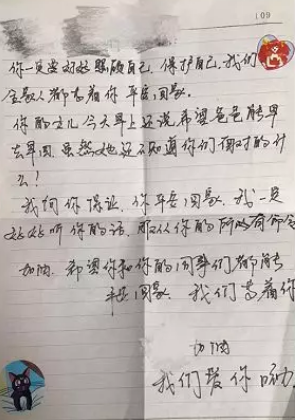 109
你一定要好好照顾自己，保护自己，我们
全家人都等着你平安回家。
你的女儿今天早上还说希望爸爸能早
去早回，虽然她还不知道你们面对的什
么！
我向你保证，你平安回家，我一定
好好听你的话，服从你的所有命令
加油，希望你和你的同事们都能
平安回家，我们等着你
加油
我们爱你呦